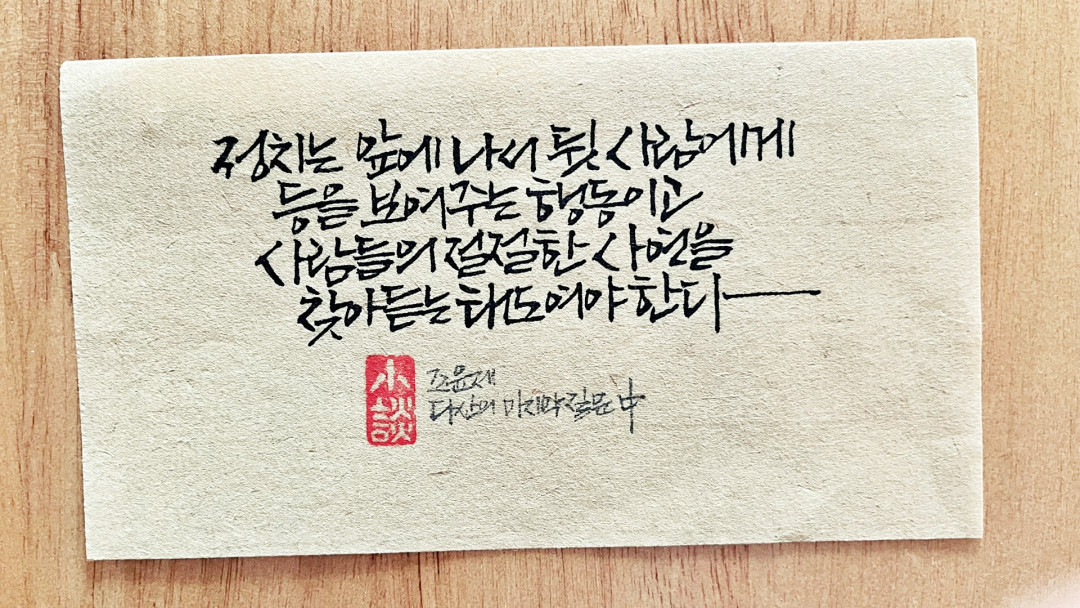 정치는 앞에 나서 뒷 사람에게
등을 보여주는 행동이고
사람들의 절절한 사연을
찾아듣는 태도여야 한다
小談
조윤제
다산의 마지막 질문 中